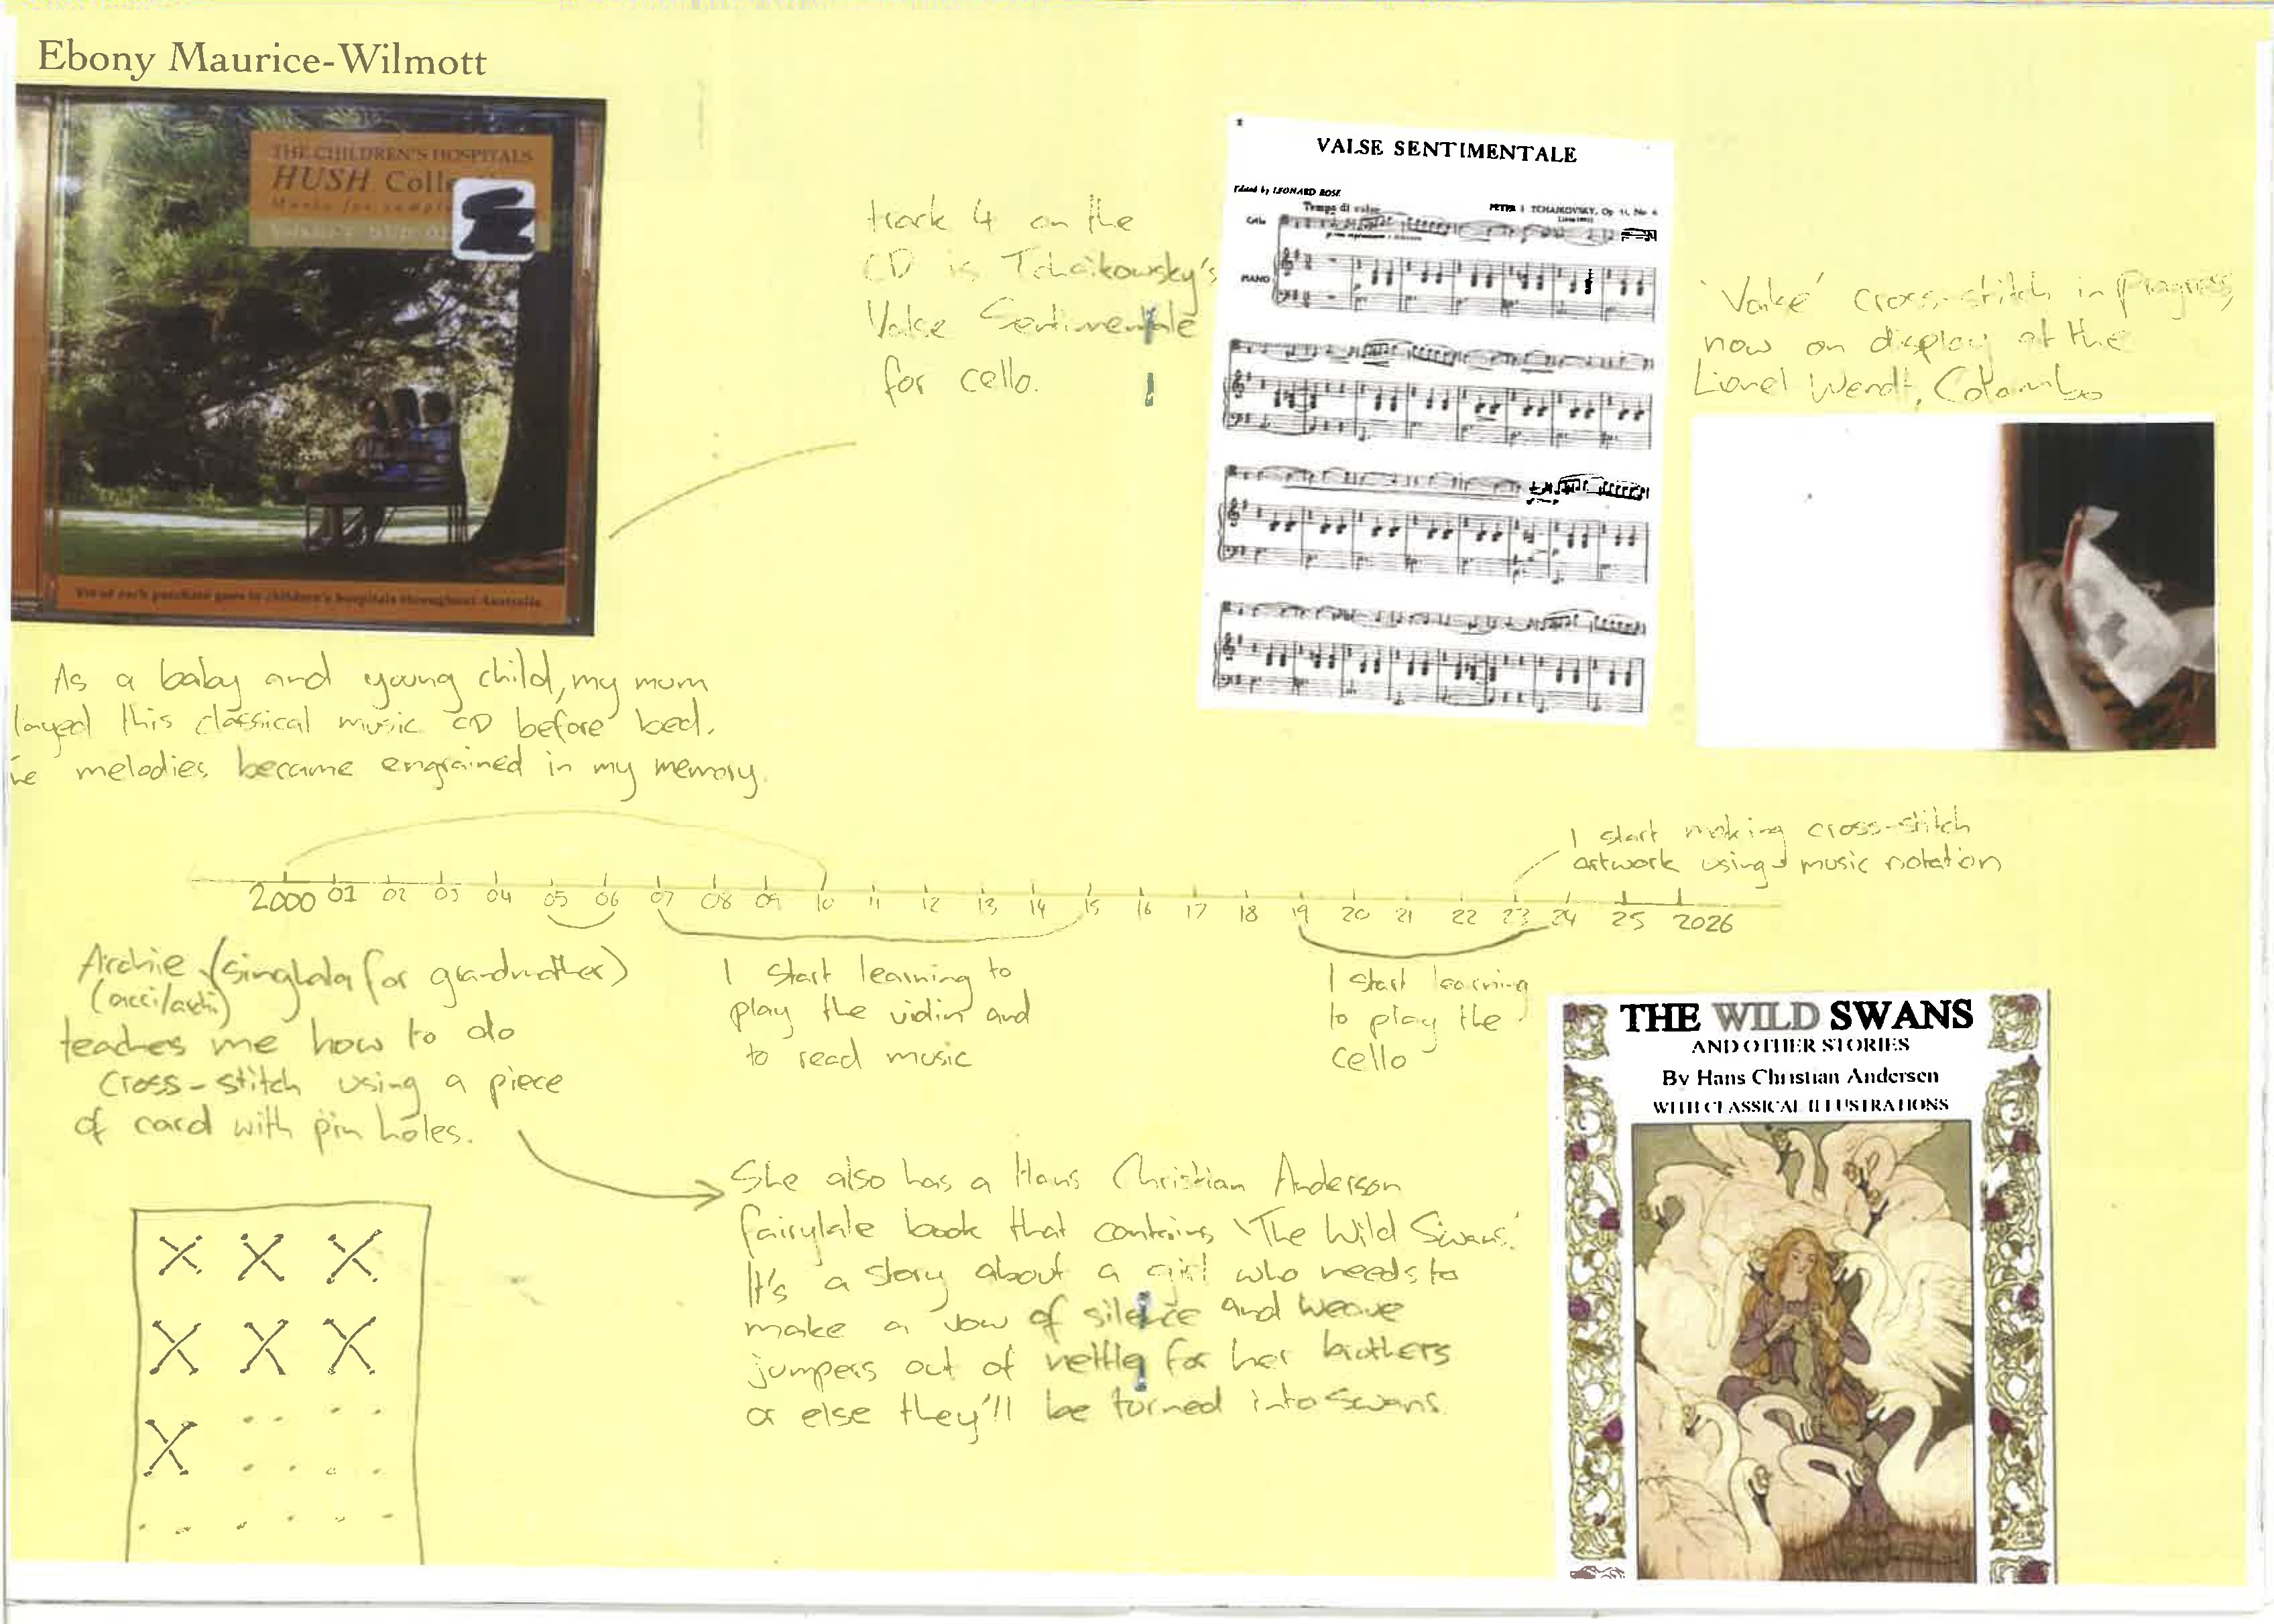 Ebony Maurice-Wilmott
THE CHILDREN'S HOSPITALS
HUSH Colle
Music for
of each purchase goes to children's hospitals throughout Australia
track 4 on the
CD is Tchaikowsky's
Valse Sentimentale
for cello.
VALSE SENTIMENTALE
Edited by LEONARD ROSE
Tempo di valse
PETER I. TCHAIKOVSKY, Op. 51, No. 6
Cello
PIANO
'Valse' cross-stitch in progress,
now on display at the
Lionel Wendt, Colombo
As a baby and young child, my mum
layed this classical music CD before bed.
he melodies became engrained in my memory.
I start making cross-stitch
artwork using music notation
2000 01 02 03 04 05 06 07 08 09 10 11 12 13 14 15 16 17 18 19 20 21 22 23 24 25 2026
Archie (singhala for grandmother)
(acci/
teaches me how to do
cross-stitch using a piece
of card with pin holes.
I start learning to
play the violin and
to read music
I start learning
to play the
cello
She also has a Hans Christian Anderson
fairytale book that contains 'The Wild Swans.'
It's a story about a girl who needs to
make a vow of silence and weave
jumpers out of nettle for her brothers
or else they'll be turned into swans.
THE WILD SWANS
AND OTHER STORIES
By Hans Christian Andersen
WITH CLASSICAL ILLUSTRATIONS